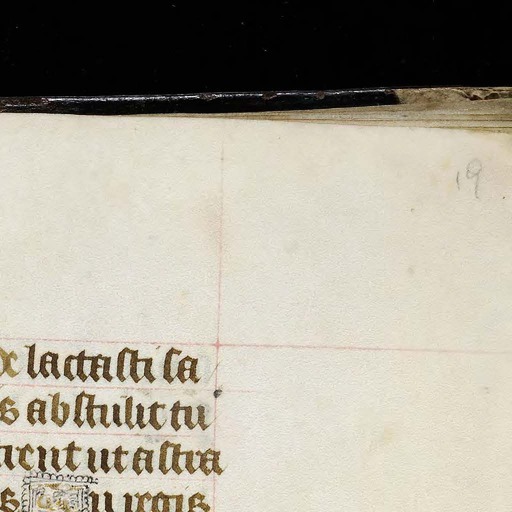 19
lactasti sa
s abstulit tu
trent ut astra
s Tu regis